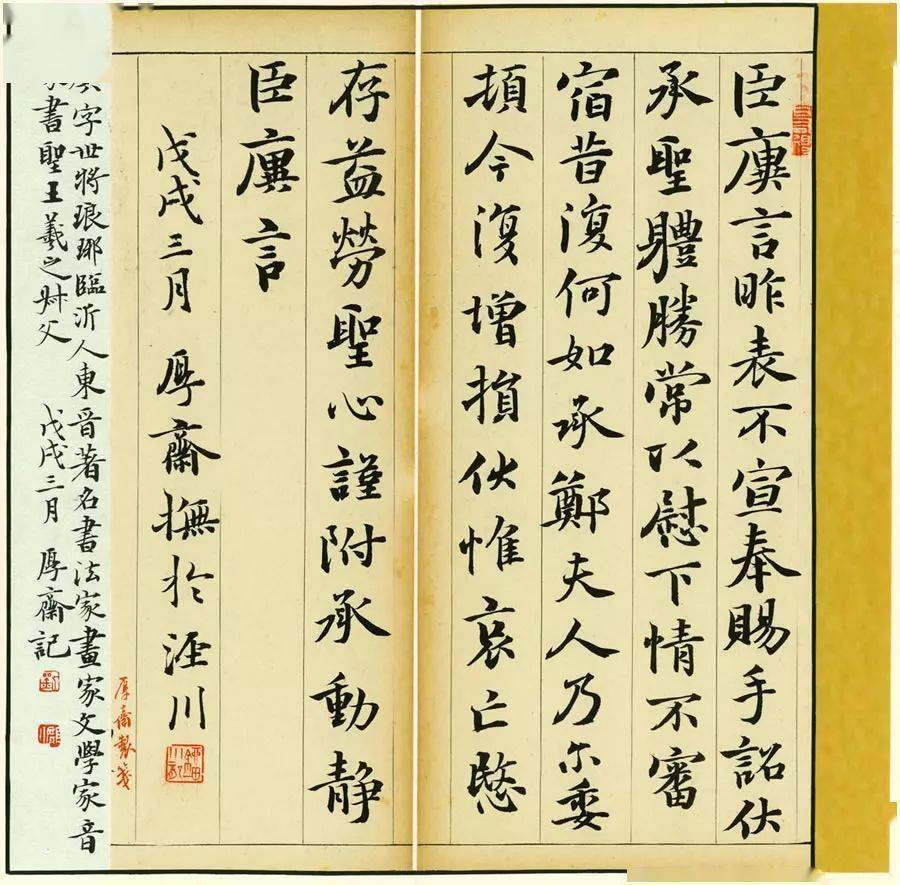 臣廙言昨表不宣奉賜手詔伏
承聖體勝常以慰下情不審
宿昔復何如承鄭夫人乃尓委
頓今復增損伏惟哀亡愍
存益勞聖心謹附承動静
臣廙言
戊戌三月 厚齋撫於涇川
厚齋製箋
字世將琅琊臨沂人東晉著名書法家畫家文學家音
書聖王羲之叔父 戊戌三月 厚齋記